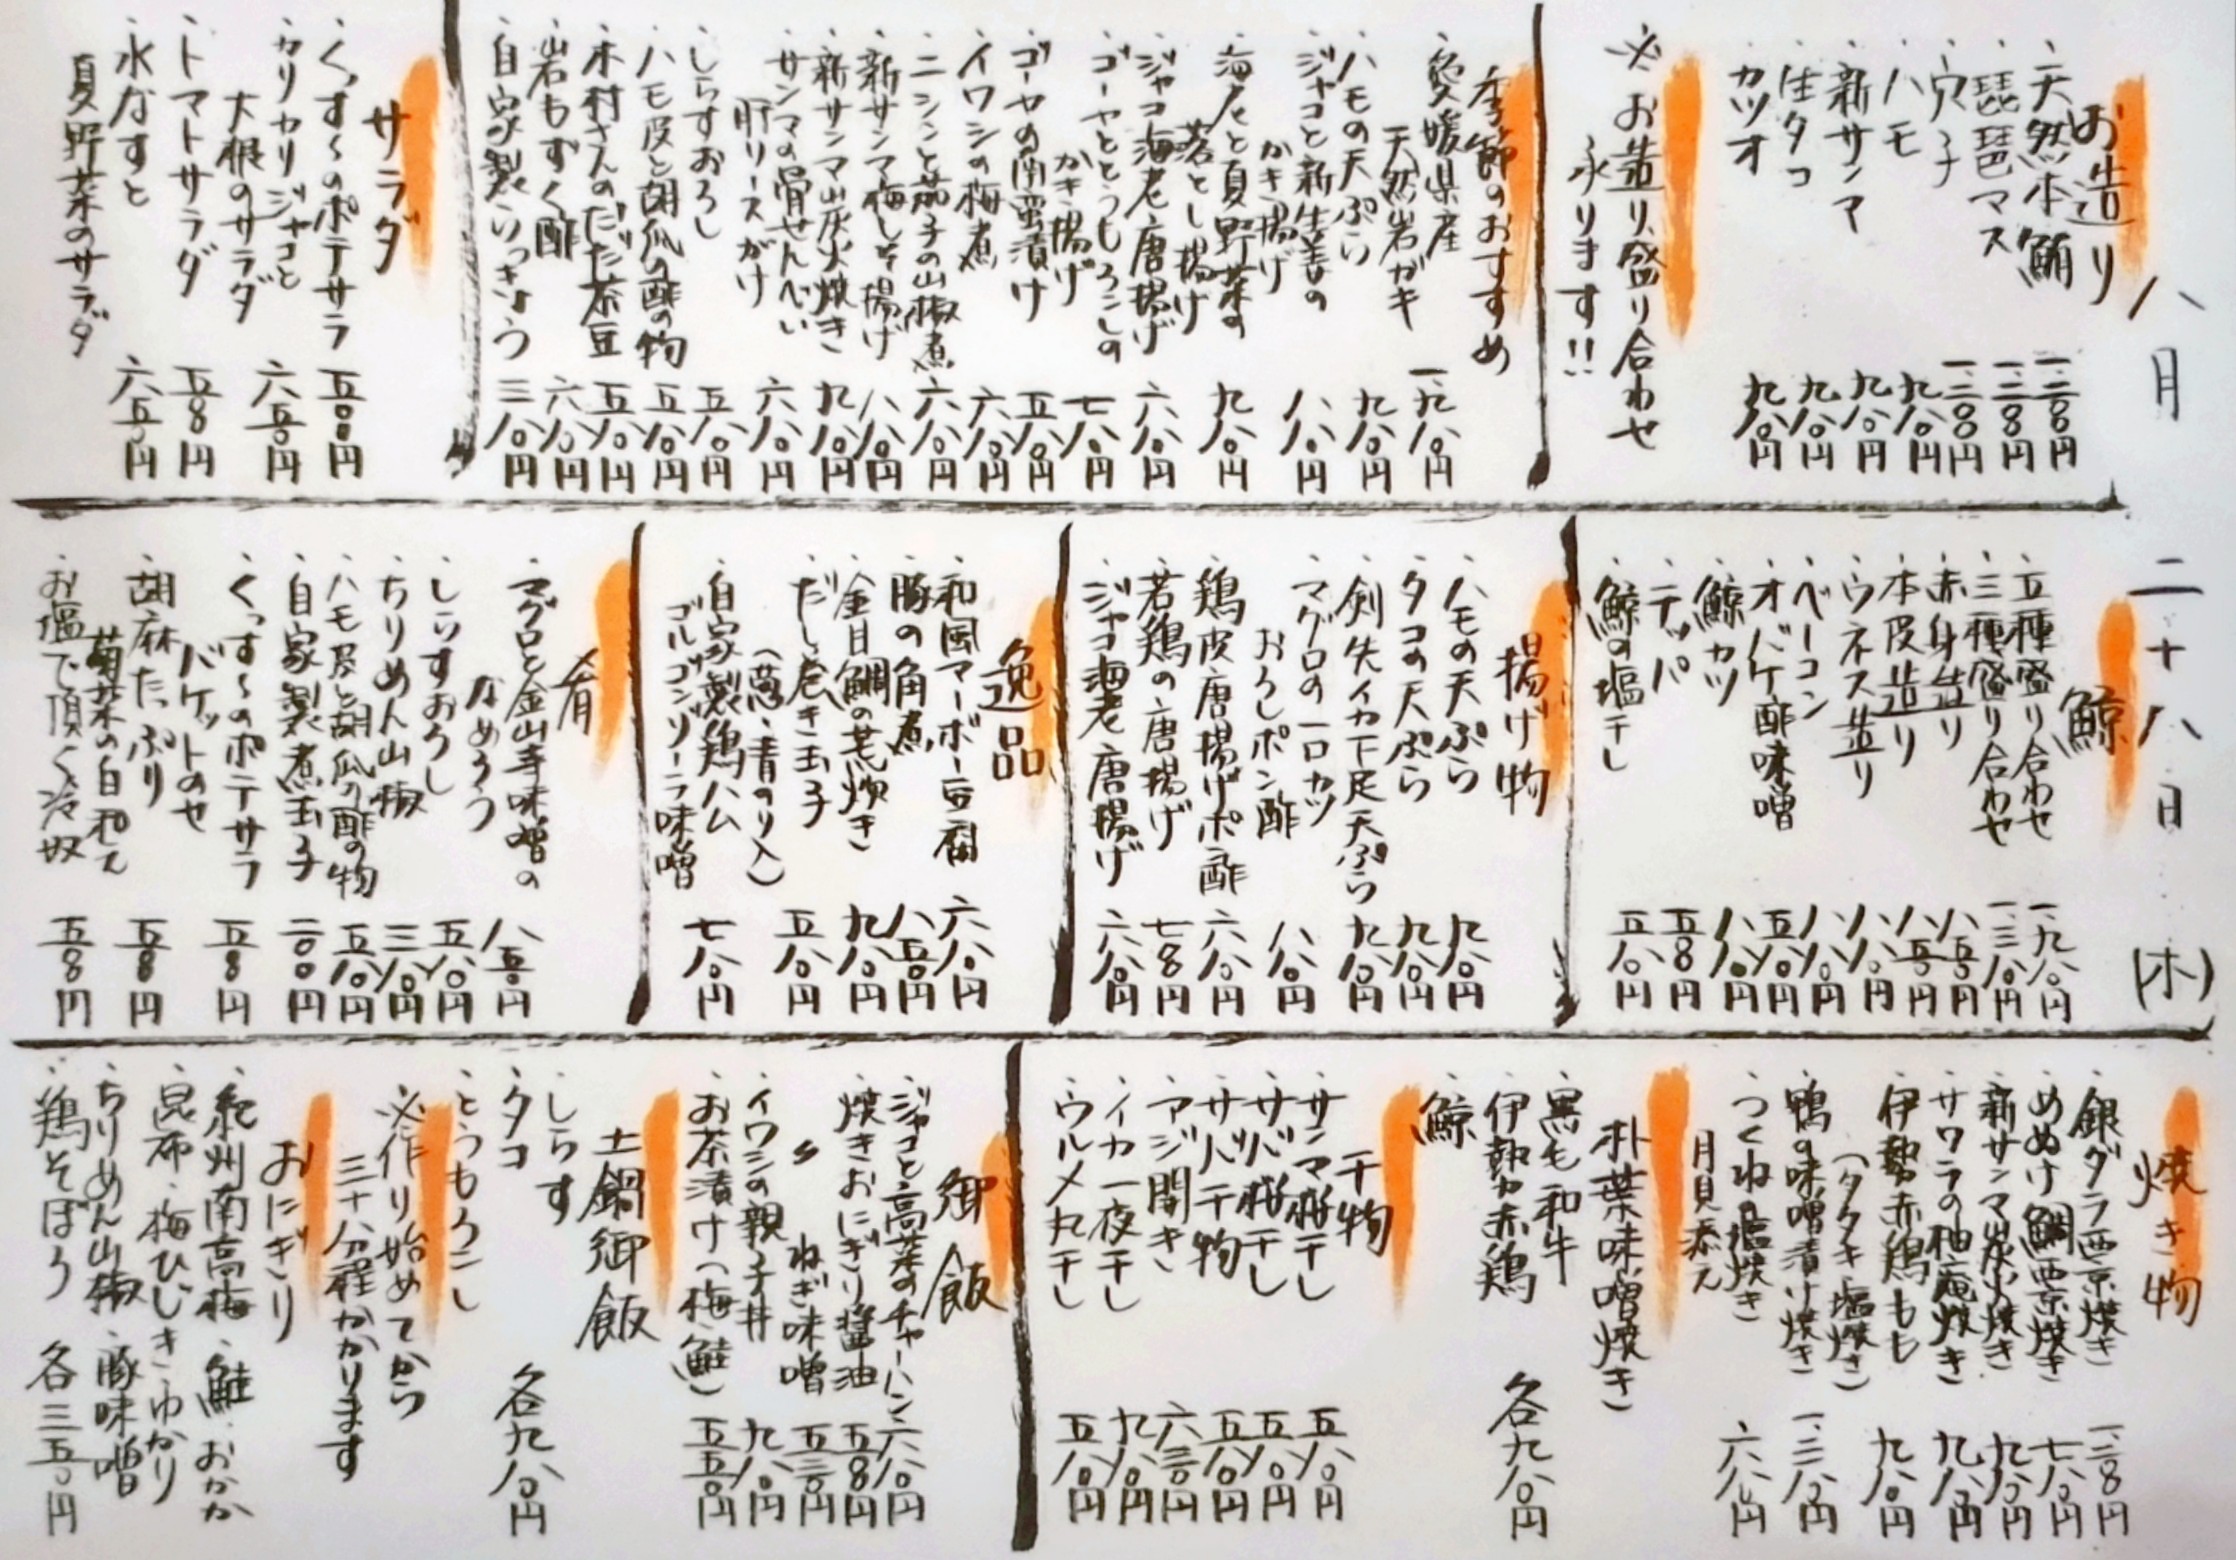 八月二十八日(木)
お造り
・天然本鮪 一、二〇〇円
・琵琶マス 一、二〇〇円
・穴子 一、二〇〇円
・ハモ 九八〇円
・新サンマ 九八〇円
・生タコ 九八〇円
・カツオ 九八〇円
※お造り盛り合わせ
承ります!!
季節のおすすめ
・愛媛県産
天然岩ガキ 一、九八〇円
・ハモの天ぷら 九八〇円
・ジャコと新生姜の
かき揚げ 八八〇円
・海老と夏野菜の
落とし揚げ 九八〇円
・ジャコ海老唐揚げ 六八〇円
・ゴーヤととうもろこしの
かき揚げ 七八〇円
・ゴーヤの南蛮漬け 五八〇円
・イワシの梅煮 六八〇円
・ニシンと茄子の山椒煮 六八〇円
・新サンマ梅しそ揚げ 八八〇円
・新サンマ炭火焼き 九八〇円
・サンマの骨せんべい
肝リースがけ 六八〇円
・しらすおろし 五八〇円
・ハモ皮と胡瓜の酢の物 五八〇円
・木村さんのだだ茶豆 五八〇円
・岩もずく酢 六八〇円
・自家製らっきょう 三八〇円
サラダ
・くっす〜のポテサラ 五〇〇円
・カリカリジャコと
大根のサラダ 六五〇円
・トマトサラダ 五八〇円
・水なすと
夏野菜のサラダ 六五〇円
鯨
・五種盛り合わせ 一、九八〇円
・三種盛り合わせ 一、三八〇円
・赤身造り 八五〇円
・本皮造り 八五〇円
・ウネス造り 八八〇円
・ベーコン 八八〇円
・オバケ酢味噌 五八〇円
・鯨カツ 八八〇円
・テッパ 五八〇円
・鯨の塩干し 五八〇円
揚げ物
・ハモの天ぷら 九八〇円
・タコの天ぷら 九八〇円
・剣先イカ下足天ぷら 九八〇円
・マグロの一口カツ
おろしポン酢 八八〇円
・鶏皮唐揚げポン酢 六八〇円
・若鶏の唐揚げ 七八〇円
・ジャコ海老唐揚げ 六八〇円
逸品
・和風マーボー豆腐 六八〇円
・豚の角煮 八五〇円
・金目鯛の荒炊き 九八〇円
・だし巻き玉子
(葱・青のり入) 五八〇円
・自家製鶏ハム
ゴルゴンゾーラ味噌 七八〇円
肴
・マグロと金山寺味噌の
なめろう 八五〇円
・しらすおろし 五八〇円
・ちりめん山椒 三八〇円
・ハモ皮と胡瓜の酢の物 五八〇円
・自家製煮玉子 二〇〇円
・くっす〜のポテサラ
バケットのせ 五八〇円
・胡麻たっぷり
菊菜の白和え 五八〇円
・お塩で頂く冷奴 五八〇円
焼き物
・銀ダラ西京焼き 一、二八〇円
・めぬけ鯛西京焼き 七八〇円
・新サンマ炭火焼き 九八〇円
・サワラの柚庵焼き 九八〇円
・伊勢赤鶏もも
(タタキ・塩焼き) 九八〇円
・鴨の味噌漬け焼き 一、三八〇円
・つくねの塩焼き
月見添え 六八〇円
朴葉味噌焼き
・黒毛和牛
・伊勢赤鶏
・鯨 各九八〇円
干物
・サンマ桜干し 五八〇円
・サバ桜干し 五八〇円
・サバ干物 五八〇円
・アジ開き 六三〇円
・イカ一夜干し 九八〇円
・ウルメ丸干し 五八〇円
御飯
・ジャコと高菜のチャーハン 六八〇円
・焼きおにぎり醤油 五八〇円
・〃 ねぎ味噌 五三〇円
・イワシの親子丼 九八〇円
・お茶漬け(梅・鮭) 五五〇円
土鍋御飯
・しらす
・タコ
・とうもろこし 各九八〇円
※作り始めてから
三十分程かかります
おにぎり
・紀州南高梅・鮭・おかか
・昆布・梅ひじき・ゆかり
・ちりめん山椒・豚味噌
・鶏そぼろ 各三五〇円